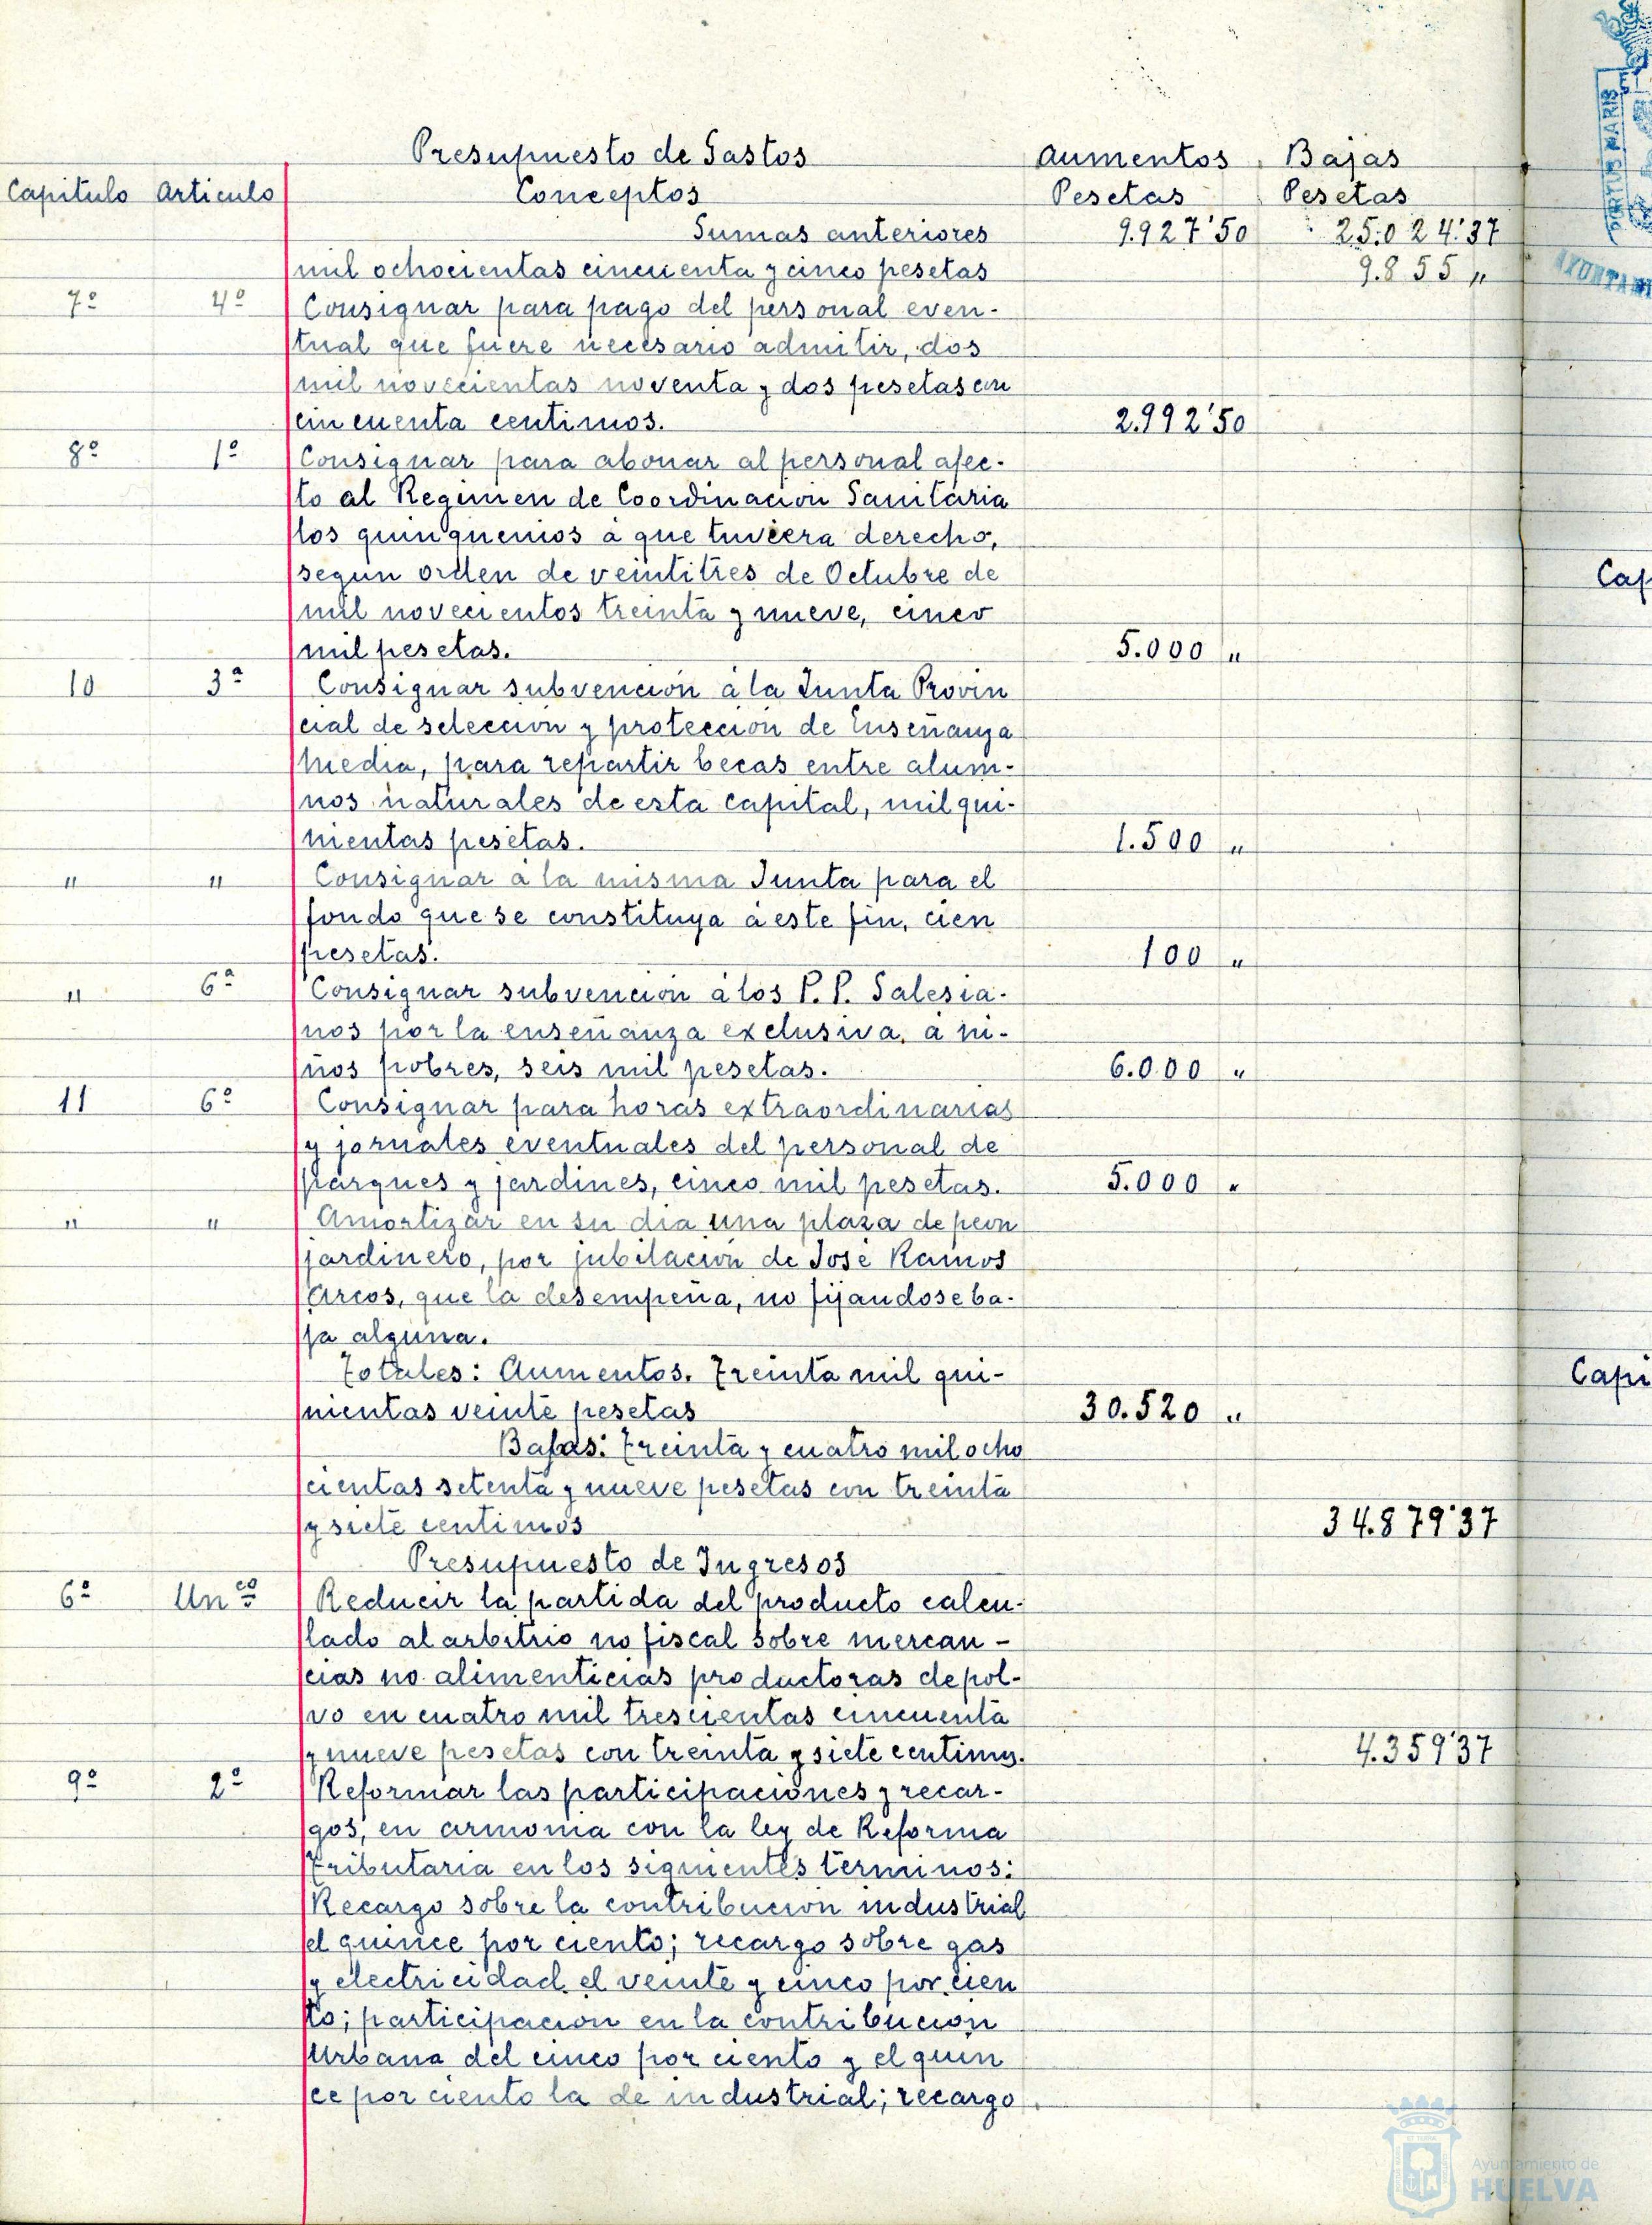 Presupuesto de Gastos Aumentos Bajas
Capitulo Articulo Conceptos Pesetas Pesetas
Sumas anteriores 9.927'50 25.024'37
mil ochocientas cincuenta y cinco pesetas 9.855 "
7º 4º Consignar para pago del personal even-
tual que fuere necesario admitir, dos
mil novecientas noventa y dos pesetas con
cincuenta centimos. 2.992'50
8º 1º Consignar para abonar al personal afec-
to al Regimen de Coordinacion Sanitaria
los quinquenios a que tuviera derecho,
segun orden de veintitres de Octubre de
mil novecientos treinta y nueve, cinco
mil pesetas. 5.000 "
10 3º Consignar subvención á la Junta Provin
cial de seleccion y protección de Enseñanza
Media, para repartir becas entre alum-
nos naturales de esta capital, mil qui-
nientas pesetas. 1.500 "
" " Consignar a la misma Junta para el
fondo que se constituya á este fin, cien
pesetas. 100 "
" 6º Consignar subvencion á los P.P. Salesia-
nos por la enseñanza exclusiva, a ni-
ños pobres, seis mil pesetas. 6.000 "
11 6º Consignar para horas extraordinarias
y jornales eventuales del personal de
parques y jardines, cinco mil pesetas. 5.000 "
" " Amortizar en su dia una plaza de peon
jardinero, por jubilación de José Ramos
Arcos, que la desempeña, no fijandose ba-
ja alguna.
Totales: Aumentos. Treinta mil qui-
nientas veinte pesetas 30.520 "
Bajas: treinta y cuatro mil ocho
cientas setenta y nueve pesetas con treinta
y siete centimos 34.879'37
Presupuesto de Ingresos
6º Unco Reducir la partida del producto calcu-
lado al arbitrio no fiscal sobre mercan-
cias no alimenticias productoras de pol-
vo en cuatro mil trescientas cincuenta
y nueve pesetas con treinta y siete centimos. 4.359'37
9º 2º Reformar las participaciones y recar-
gos, en armonia con la ley de Reforma
tributaria en los siguientes terminos:
Recargo sobre la contribucion industrial
el quince por ciento; recargo sobre gas
y electricidad el veinte y cinco por cien
to; participacion en la contribucion
Urbana del cinco por ciento y el quin
ce por ciento la de industrial; recargo
Cap
Capi
PORTUS MARIS
AYUNTAMI
Ayuntamiento de
HUELVA